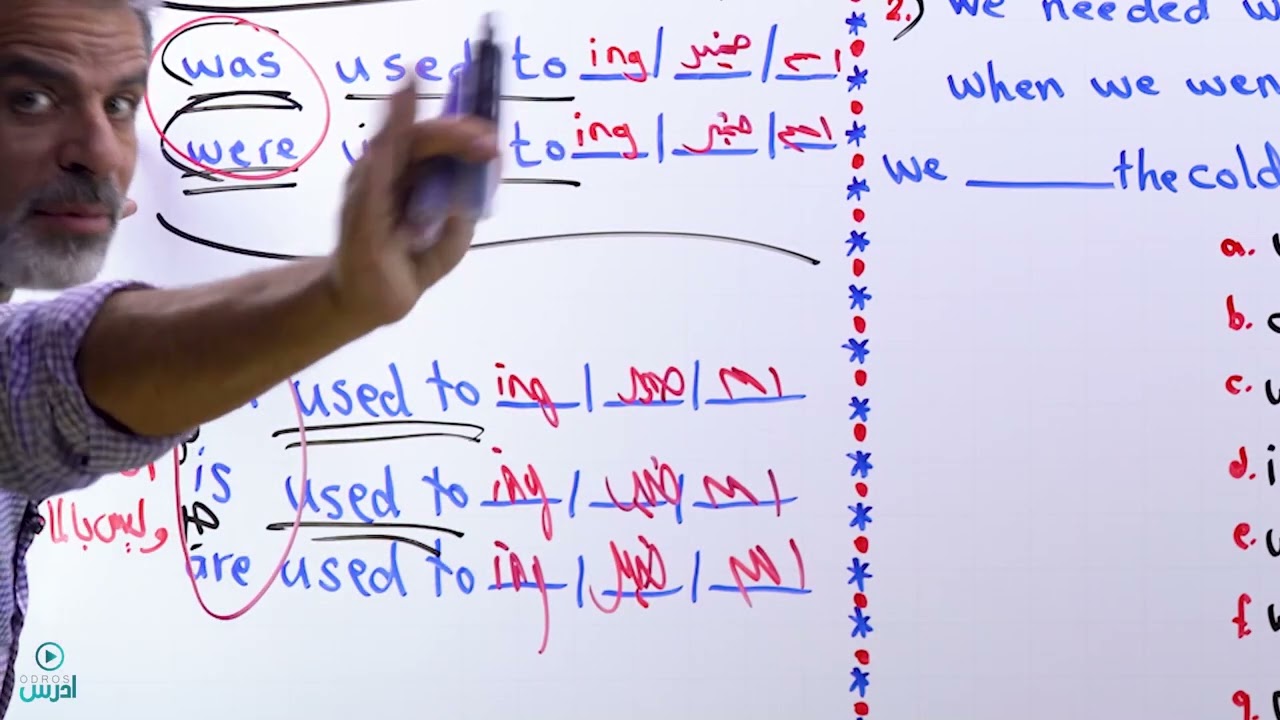 was used to ing / ضمير / اسم
were to ing / ضمير / اسم
used to ing / ضمير / اسم
is used to ing / ضمير / اسم
are used to ing / ضمير / اسم
وليس بالـ
2.) We needed
when we wen
we ______ the cold
a.
b.
c.
d. i
e.
f.
g.
ODROS
ادرس